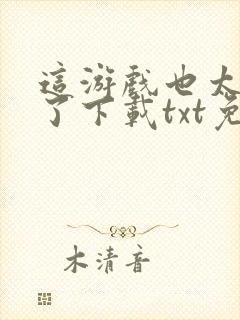 這游戲也太
了下載txt免
木清音